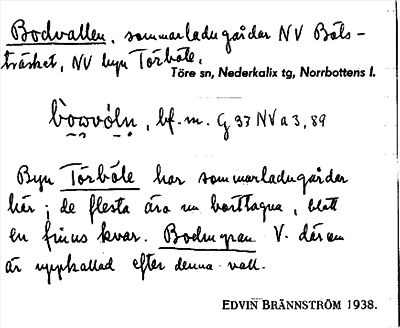 Bodvallen, sommarladugårdar NV Böls-
träsket, NV byn Törböle.
Töre sn, Nederkalix tg, Norrbottens l.
bf. m. G 33 NV a 3, 89
Byn Törböle har sommarladugårdar
här; de flesta äro nu borttagna, blott
en finns kvar. Bodmyran V. därom
är uppkallad efter denna vall.
EDVIN BRÄNNSTRÖM 1938.